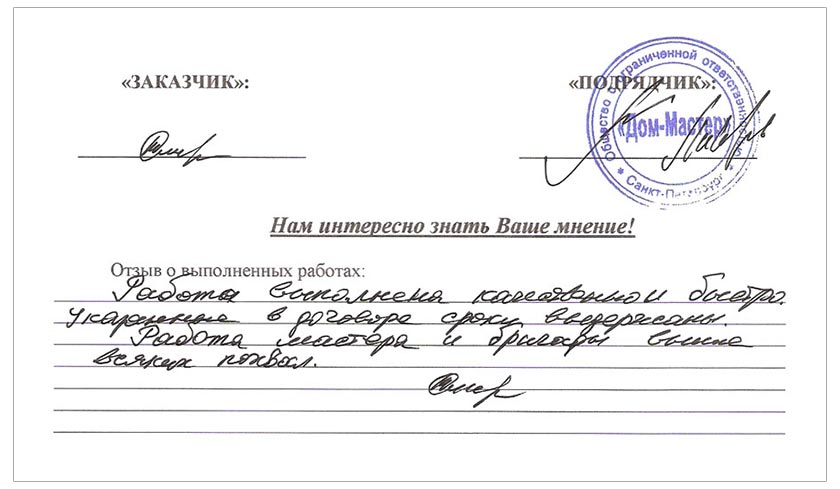 «ЗАКАЗЧИК»: «ПОДРЯДЧИК»:
Общество с ограниченной ответственностью
«Дом-Мастер»
* Санкт-Петербург *
Нам интересно знать Ваше мнение!
Отзыв о выполненных работах:
Работа выполнена качественно и быстро.
Указанные в договоре сроки выдержаны.
Работа мастера и бригады выше
всяких похвал.